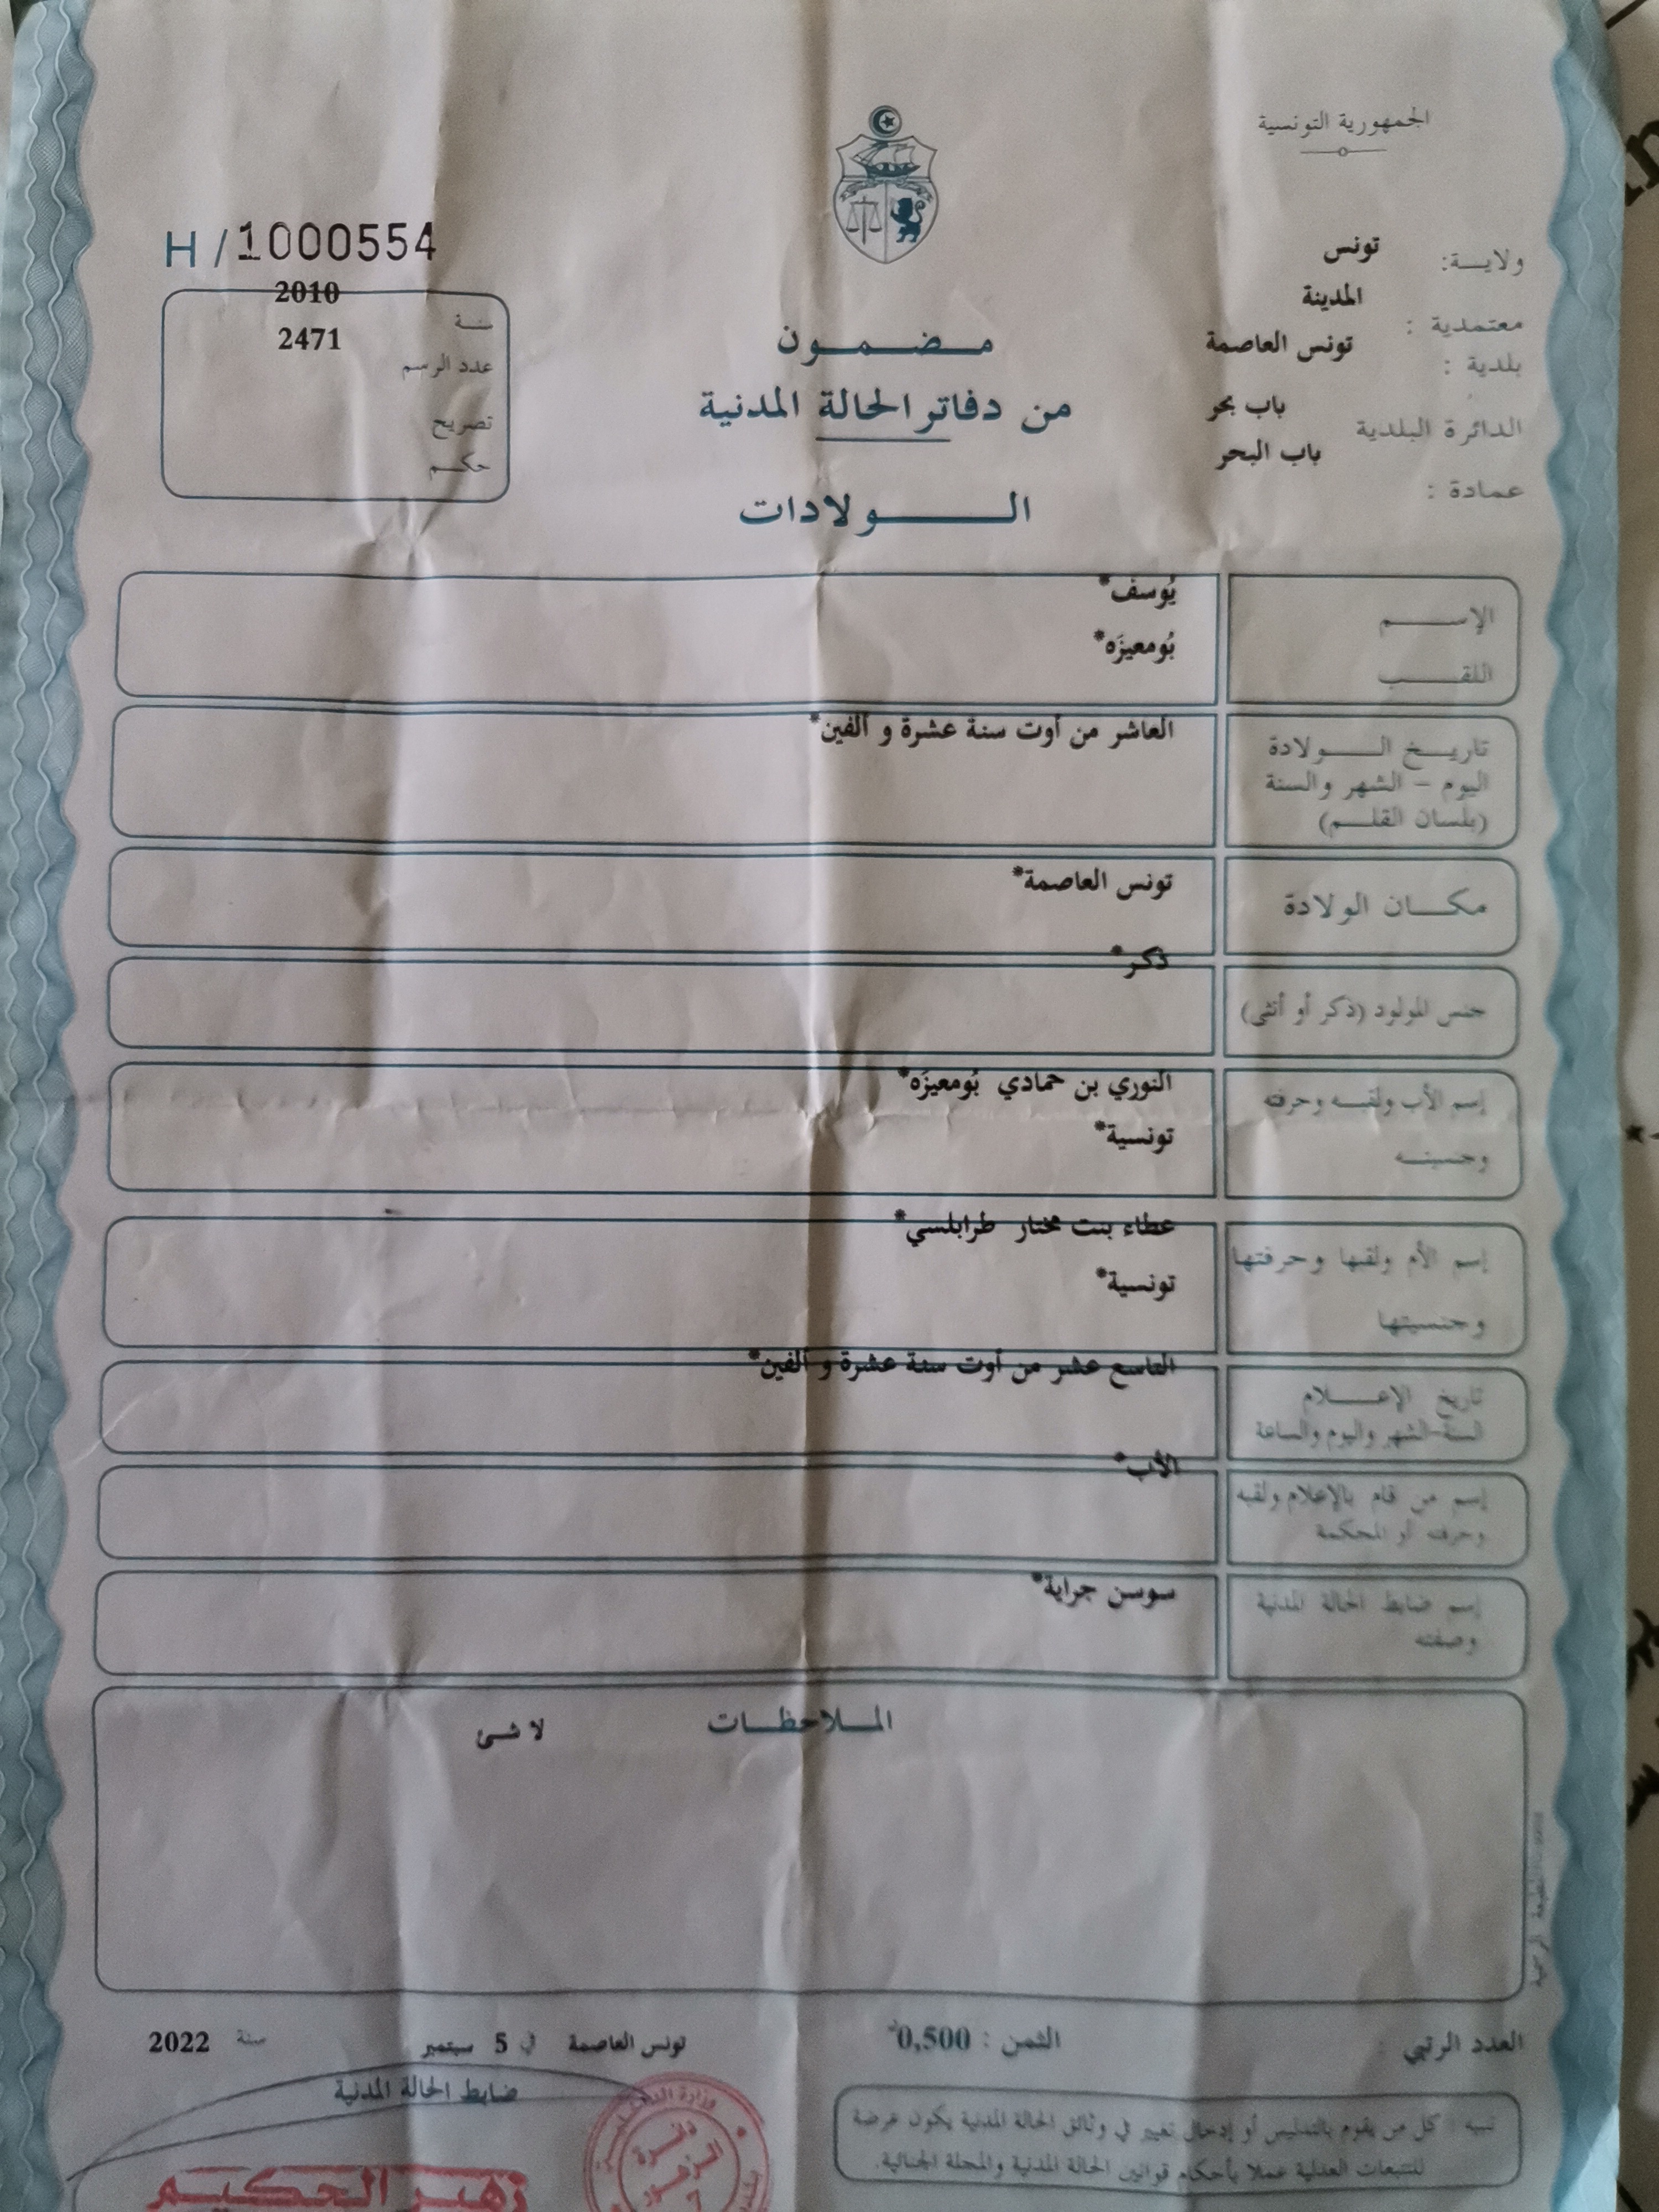 الجمهورية التونسية
ولاية: تونس
معتمدية : المدينة
بلدية : تونس العاصمة
الدائرة البلدية باب بحر
عمادة : باب البحر
H/1000554
سنة 2010
عدد الرسم 2471
تصريح
حكم
مضمون
من دفاتر الحالة المدنية
الولادات
الإسم يُوسف*
اللقب بُومعيزَه*
تاريخ الولادة العاشر من أوت سنة عشرة و ألفين*
اليوم - الشهر والسنة
(بلسان القلم)
مكان الولادة تونس العاصمة*
جنس المولود (ذكر أو أنثى) ذكر*
إسم الأب ولقبه وحرفته النوري بن حمادي بُومعيزَه*
وجنسيته تونسية*
إسم الأم ولقبها وحرفتها عطاء بنت مختار طرابلسي*
وجنسيتها تونسية*
تاريخ الإعلام التاسع عشر من أوت سنة عشرة و ألفين*
السنة-الشهر واليوم والساعة
إسم من قام بالإعلام ولقبه الأب*
وحرفته أو المحكمة
إسم ضابط الحالة المدنية سوسن جراية*
وصفته
الملاحظات لا شئ
العدد الرتبي :
الثمن : 0,500د
تونس العاصمة في 5 سبتمبر سنة 2022
ضابط الحالة المدنية
تنبيه : كل من يقوم بالتدليس أو إدخال تغيير في وثائق الحالة المدنية يكون عرضة
للتتبعات العدلية عملا بأحكام قوانين الحالة المدنية والمجلة الجنائية.
زهير الحكيم